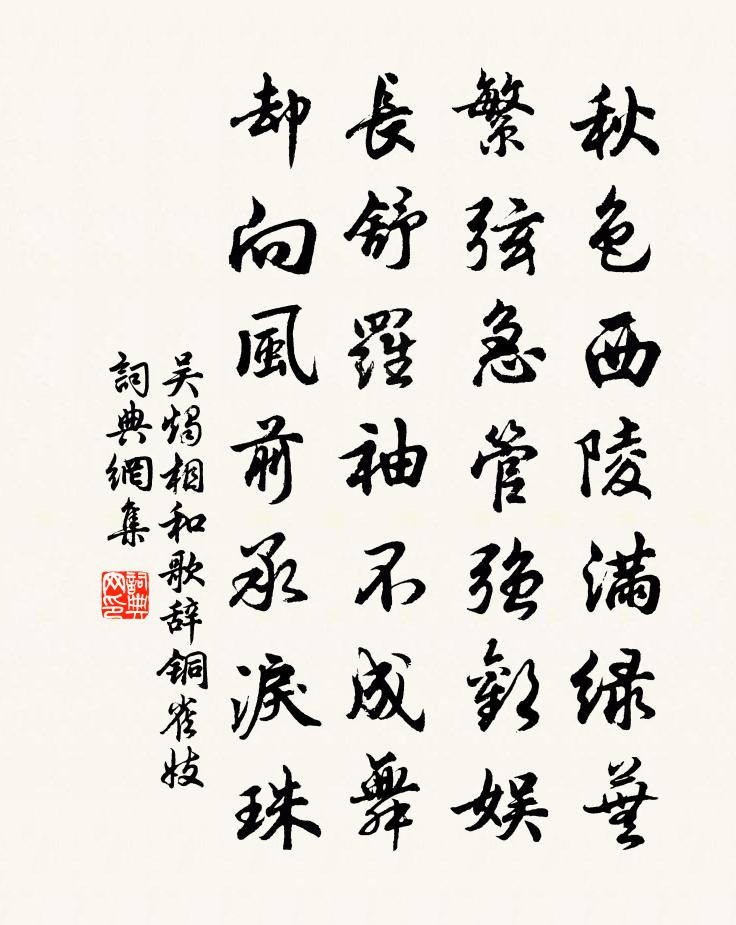 秋色西陵滿绿蕪
繁弦急管強歡娱
長舒羅袖不成舞
却向風前承淚珠
吴燭相和歌辞銅雀妓
詞典網集
詞典网印